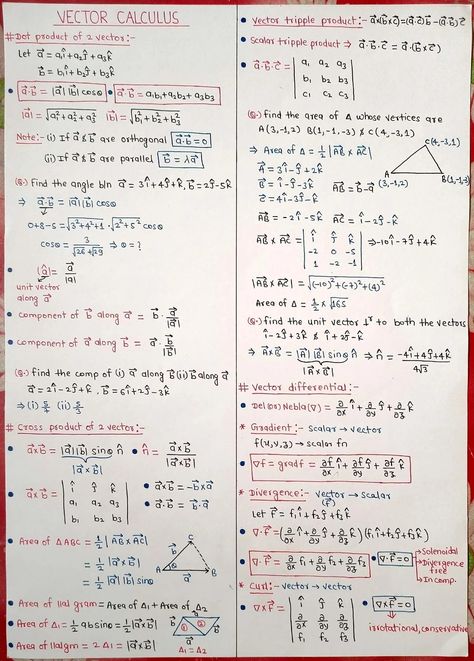 VECTOR CALCULUS
# Dot product of 2 vector:-
Let a⃗ = a₁î + a₂ĵ + a₃k̂
b⃗ = b₁î + b₂ĵ + b₃k̂
• a⃗·b⃗ = |a⃗||b⃗| cosθ • a⃗·b⃗ = a₁b₁+a₂b₂+a₃b₃
|a⃗| = √a₁²+a₂²+a₃² |b⃗| = √b₁²+b₂²+b₃²
Note:- (i) If a⃗ & b⃗ are orthogonal a⃗·b⃗=0
(ii) If a⃗ & b⃗ are parallel b⃗ = λa⃗
(Q-) Find the angle b/n a⃗ = 3î+4ĵ+k̂, b⃗=2ĵ-5k̂
⇒ a⃗·b⃗ = |a⃗||b⃗| cosθ
0+8-5 = √3²+4²+1 · √2²+5² cosθ
cosθ = 3/√26√29 ⇒ θ = ?
• (â) = a⃗/|a⃗|
unit vector
along a⃗
• component of b⃗ along a⃗ = b⃗ · a⃗/|a⃗|
• component of a⃗ along b⃗ = a⃗ · b⃗/|b⃗|
(Q-) find the comp of (i) a⃗ along b⃗ (ii) b⃗ along a⃗
a⃗ = 2î-2ĵ+k̂, b⃗ = 6î+2ĵ-3k̂
⇒ (i) 5/7 (ii) 5/3
# Cross product of 2 vector:-
• a⃗×b⃗ = |a⃗||b⃗| sinθ n̂ • n̂ = a⃗×b⃗/|a⃗×b⃗|
|a⃗×b⃗|
a⃗×b⃗ = | î ĵ k̂ | • a⃗×b⃗ = -b⃗×a⃗
| a₁ a₂ a₃ | • a⃗·b⃗ = b⃗·a⃗
| b₁ b₂ b₃ |
• Area of ΔABC = 1/2 |AB⃗×AC⃗|
= 1/2 |a⃗×b⃗|
= 1/2 |a⃗||b⃗| sinθ
C
b⃗
A a⃗ B
• Area of llal gram = Area of Δ₁ + Area of Δ₂
• Area of Δ₁ = 1/2 ab sinθ = 1/2 |a⃗×b⃗|
• Area of llal gm = 2 Δ₁ = |a⃗×b⃗|
b⃗ ① ②
a⃗
Δ₁ = Δ₂
• Vector tripple product:- a⃗×(b⃗×c⃗)=(a⃗·c⃗)b⃗-(a⃗·b⃗)c⃗
• Scalar tripple product ⇒ a⃗·b⃗·c⃗ = a⃗·(b⃗×c⃗)
• a⃗·b⃗·c⃗ = | a₁ a₂ a₃ |
| b₁ b₂ b₃ |
| c₁ c₂ c₃ |
(Q-) find the area of Δ whose vertices are
A(3,-1,2) B(1,-1,-3) & C(4,-3,1)
⇒ Area of Δ = 1/2 |AB⃗×AC⃗|
A⃗ = 3î-ĵ+2k̂
B⃗ = î-ĵ-3k̂ AB⃗ = b⃗-a⃗
C⃗ = 4î-3ĵ-k̂
C(4,-3,1)
A (3,-1,2) B(1,-1,-3)
AB⃗ = -2î-5k̂ AC⃗ = î-2ĵ-k̂
AB⃗×AC⃗ = | î ĵ k̂ | ⇒ -10î-7ĵ+4k̂
| -2 0 -5 |
| 1 -2 -1 |
|AB⃗×AC⃗| = √(-10)²+(-7)²+(4)²
Area of Δ = 1/2 × √165
(Q-) find the unit vector ⊥ʳ to both the vectors
î-2ĵ+3k̂ & î+2ĵ-k̂
⇒ A⃗×B⃗ = |A⃗||B⃗| sinθ n̂ ⇒ n̂ = -4î+4ĵ+4k̂/4√3
|A⃗×B⃗|
# Vector differential:-
• Del (or) Nebla (∇) = ∂/∂x î + ∂/∂y ĵ + ∂/∂z k̂
* Gradient:- scalar → vector
f(x,y,z) → scalar fn
• ∇f = gradf = ∂f/∂x î + ∂f/∂y ĵ + ∂f/∂z k̂
* Divergence:- vector → scalar
(F⃗)
Let F⃗ = f₁î+f₂ĵ+f₃k̂
• ∇·F⃗ = (∂/∂x î + ∂/∂y ĵ + ∂/∂z k̂)(f₁î+f₂ĵ+f₃k̂)
• ∇·F⃗ = ∂/∂x f₁ + ∂/∂y f₂ + ∂/∂z f₃ • ∇·F⃗=0
→ Solenoidal
→ Divergence free
→ Incomp.
* Curl:- vector → vector
• ∇×F⃗ = | î ĵ k̂ | • ∇×F⃗=0
| ∂/∂x ∂/∂y ∂/∂z |
| f₁ f₂ f₃ |
irrotational, conservative